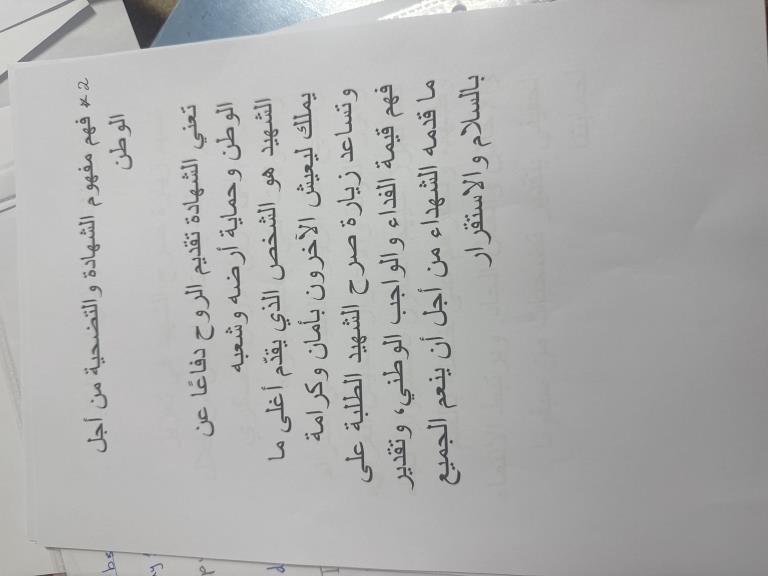 2* فهم مفهوم الشهادة والتضحية من أجل
الوطن
تعني الشهادة تقديم الروح دفاعًا عن
الوطن وحماية أرضه وشعبه
الشهيد هو الشخص الذي يقدّم أغلى ما
يملك ليعيش الآخرون بأمان وكرامة
وتساعد زيارة صرح الشهيد الطلبة على
فهم قيمة الفداء والواجب الوطني، وتقدير
ما قدمه الشهداء من أجل أن ينعم الجميع
بالسلام والاستقرار